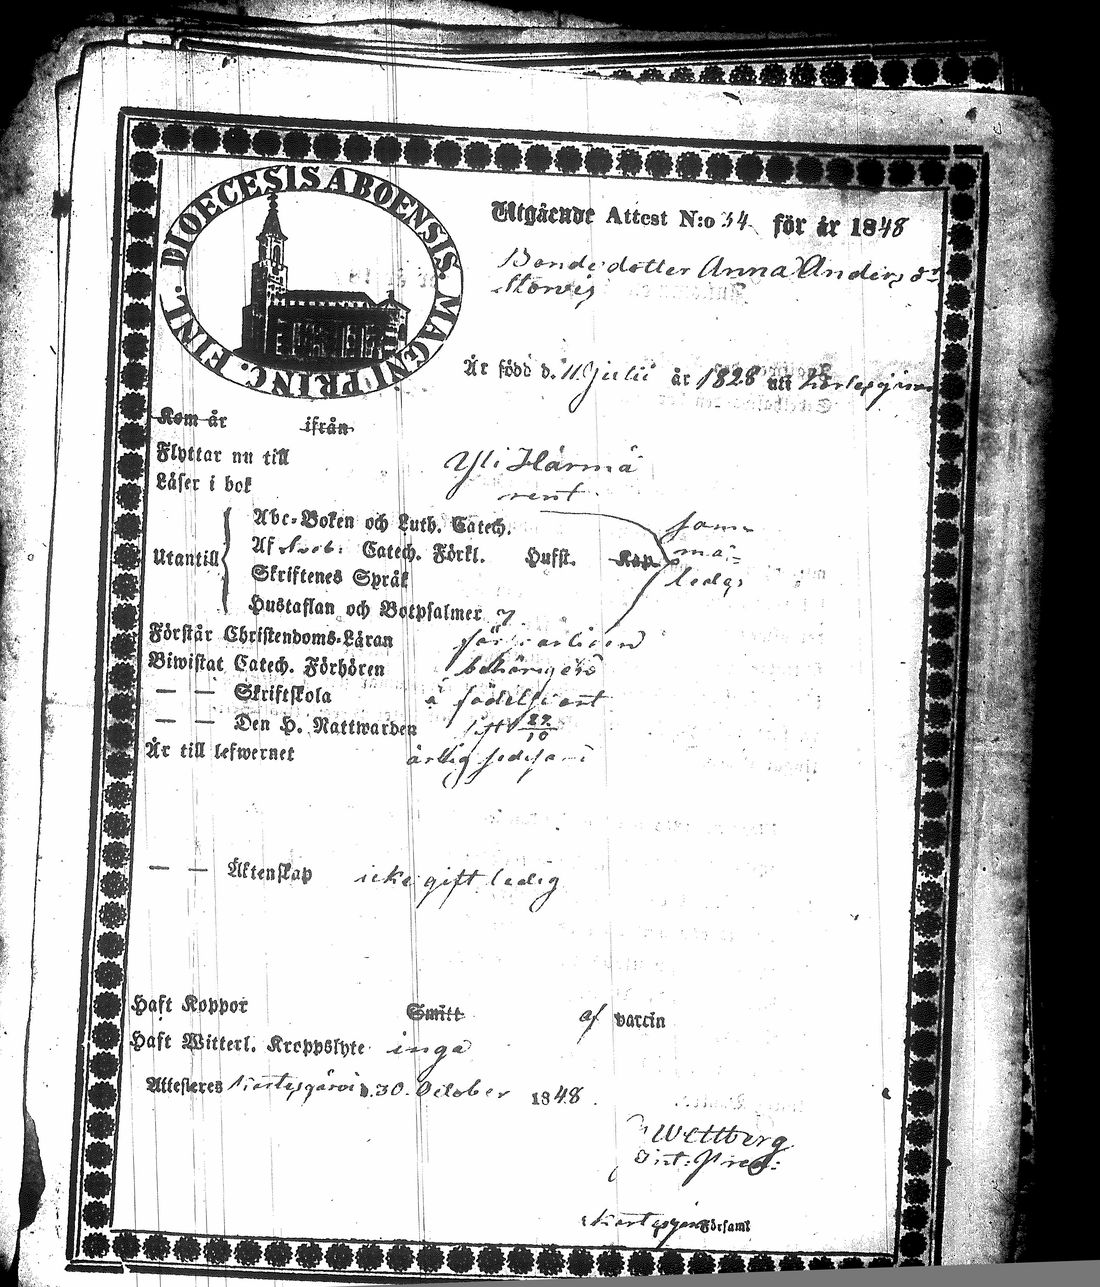 DIOECESIS ABOENSIS. MAGNI PRINC. FINL.
Utgående Attest N:o 34 för år 1848
Bondedotter Anna Andersdr
Storvig
Är född d. 11 Julii år 1828 uti
Kom år ifrån
Flyttar nu till Yli Härmä
Läser i bok rent
Abc-Boken och Luth. Catech.
Utantill
Af Sveb: Catech. Förkl. Hufst. Kap
Skriftenes Språk
Hustaflan och Botpsalmer 7
ledes
Förstår Christendoms-Läran försvarligen
Biwistat Catech. Förhören behörigen
— — Skriftskola å födelseort
— — Den H. Nattwarden 29/10
Är till lefwernet ärlig sedesam
— — Äktenskap icke gift ledig
Haft Koppor Smitt af vaccin
Haft Witterl. Kroppslyte inga
Attesteras Kortesjärvi d. 30 October 1848.
Wettberg
Kortesjärvi Församl